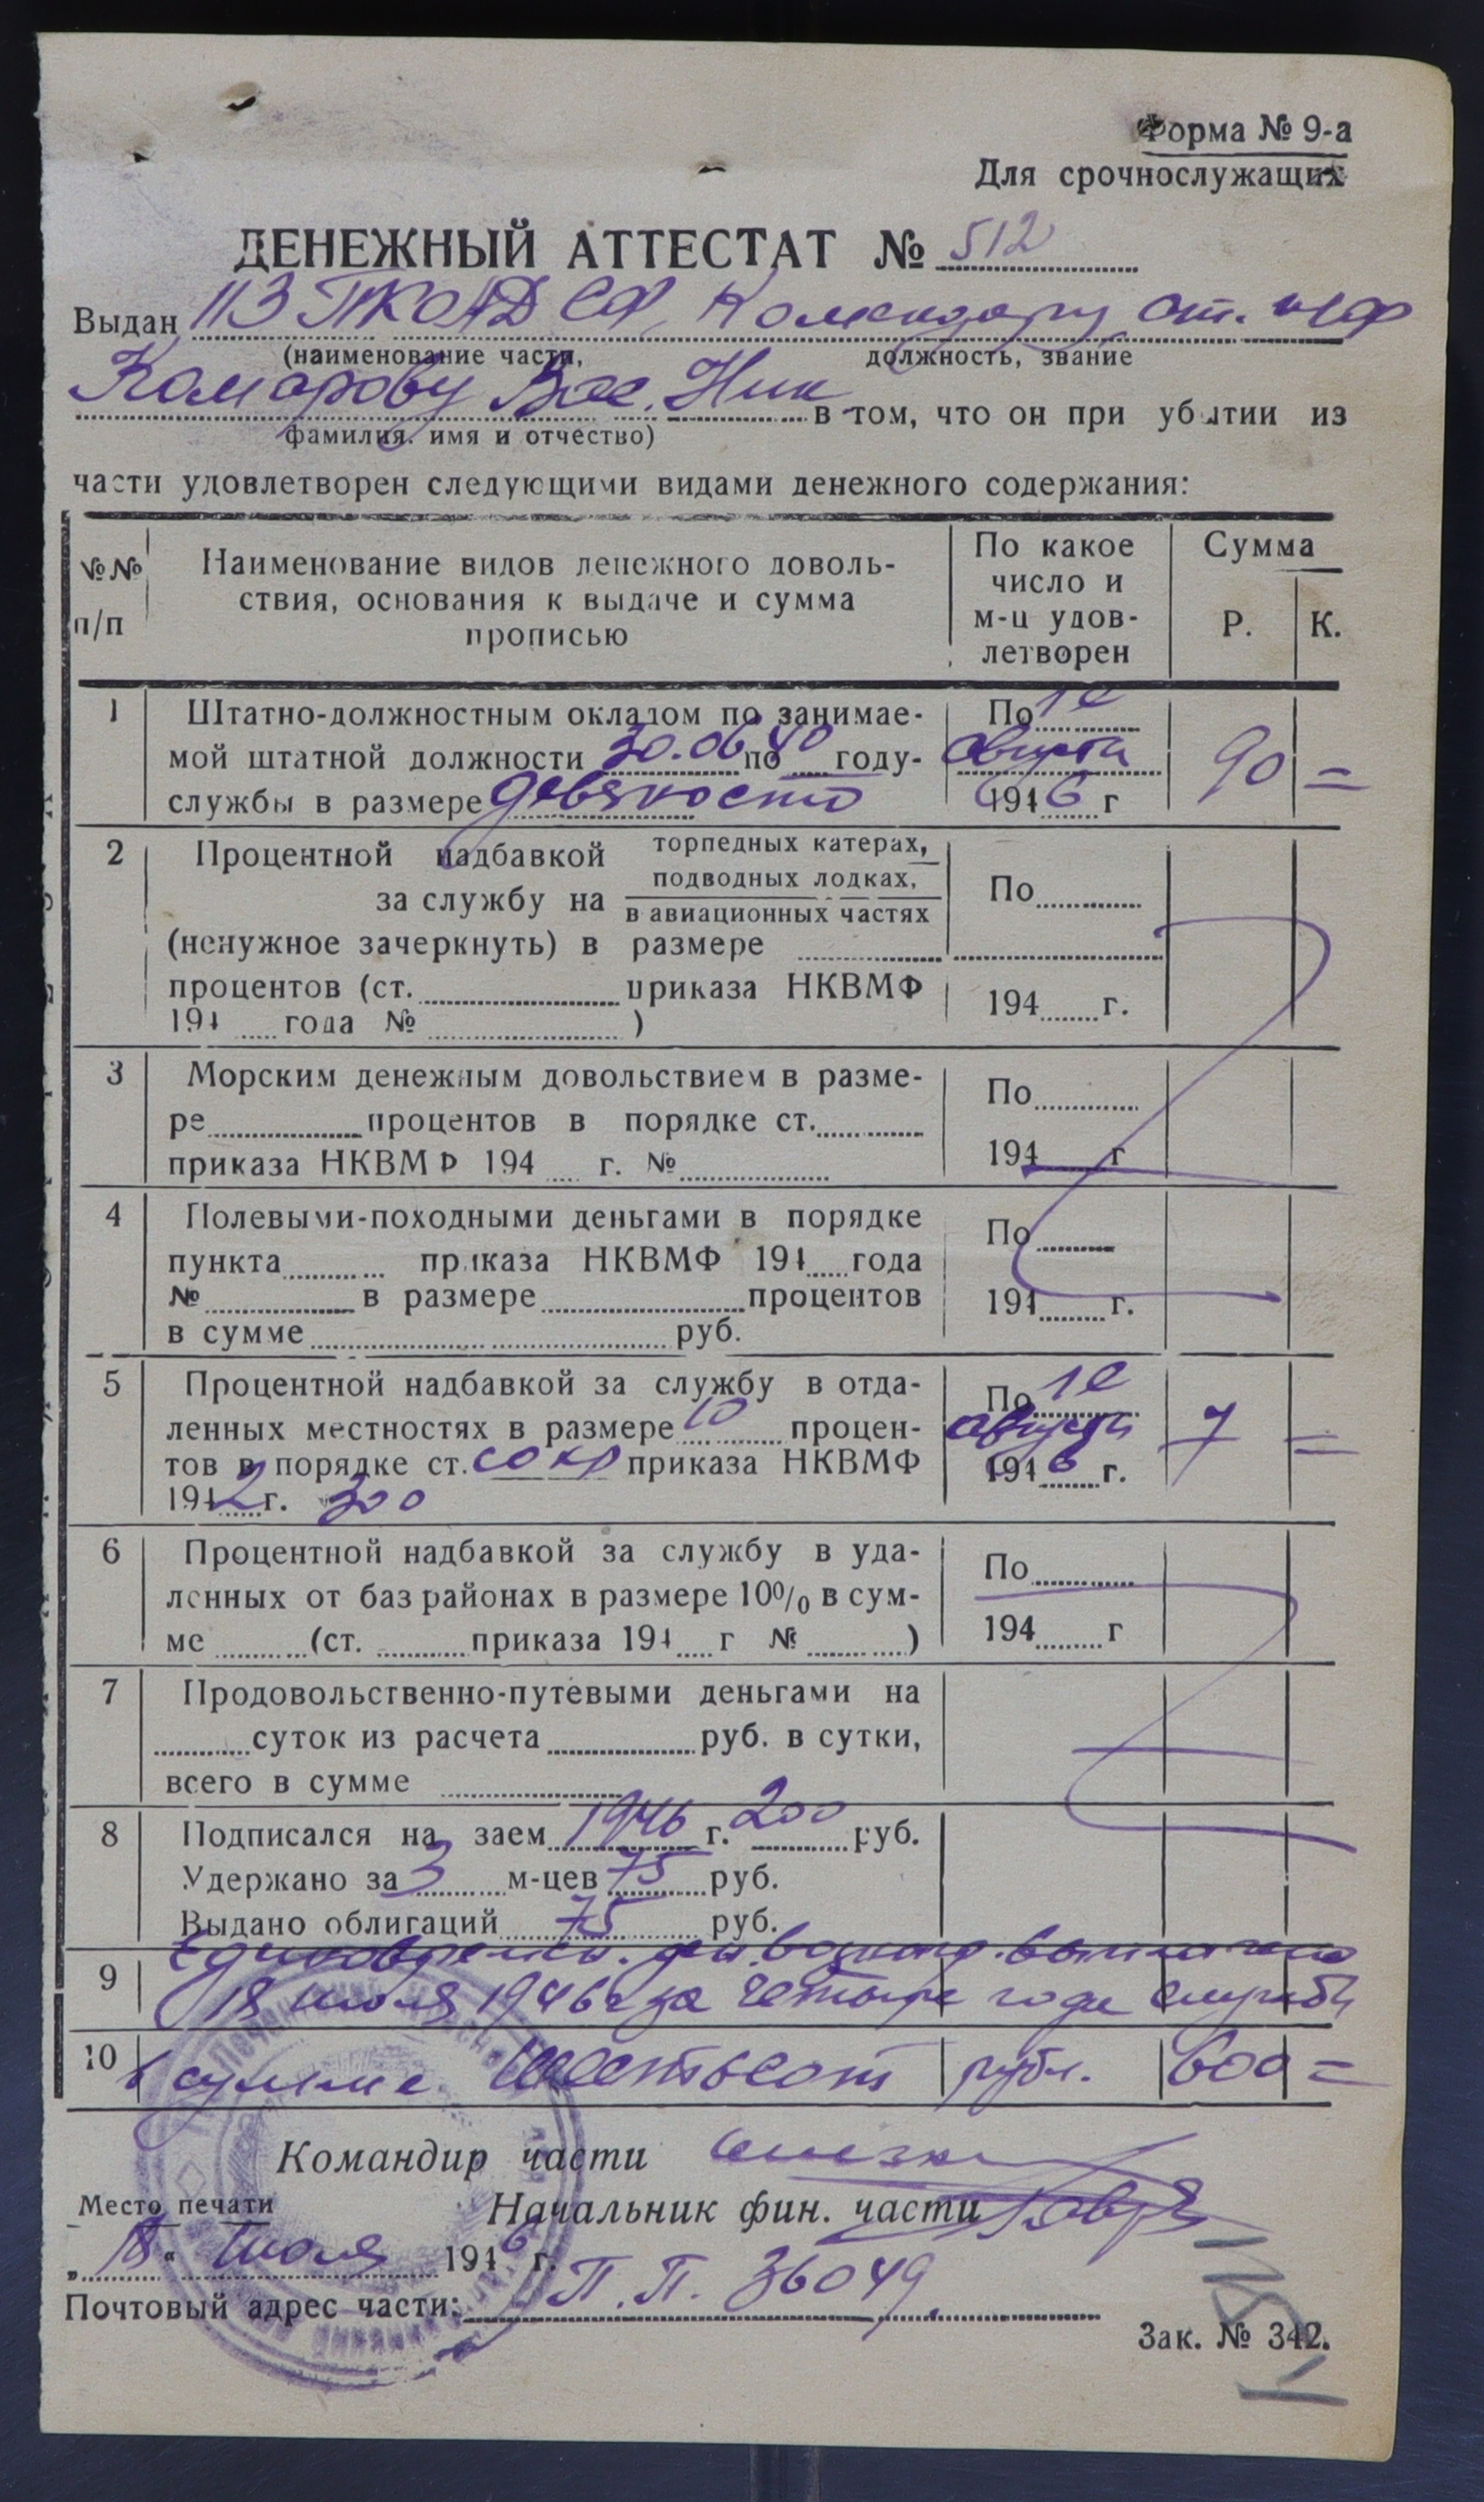 Форма № 9-а
Для срочнослужащих
ДЕНЕЖНЫЙ АТТЕСТАТ № 512
Выдан 113 ПКОАД СФ, Комендору ст.
(наименование части, должность, звание
Комарову Вас. Ник в том, что он при убытии из
фамилия, имя и отчество)
части удовлетворен следующими видами денежного содержания:
№№ п/п
Наименование видов денежного доволь-
ствия, основания к выдаче и сумма
прописью
По какое
число и
м-ц удов-
летворен
Сумма
Р. К.
1 Штатно-должностным окладом по занимае- По 1е
мой штатной должности 30.06.40 по году- августа 90 =
службы в размере девяносто 1946 г
2 Процентной надбавкой торпедных катерах,
за службу на подводных лодках, По
в авиационных частях
(ненужное зачеркнуть) в размере
процентов (ст. приказа НКВМФ 194 г.
194 года № )
3 Морским денежным довольствием в разме- По
ре процентов в порядке ст.
приказа НКВМФ 194 г. № 194 г
4 Полевыми-походными деньгами в порядке По
пункта приказа НКВМФ 194 года
№ в размере процентов 194 г.
в сумме руб.
5 Процентной надбавкой за службу в отда- По 1е
ленных местностях в размере 10 процен- августа 7 =
тов в порядке ст. приказа НКВМФ 1946 г.
1942 г. 300
6 Процентной надбавкой за службу в уда- По
ленных от баз районах в размере 10% в сум-
ме (ст. приказа 194 г № ) 194 г
7 Продовольственно-путевыми деньгами на
суток из расчета руб. в сутки,
всего в сумме
8 Подписался на заем 1946 г. 200 руб.
Удержано за 3 м-цев 75 руб.
Выдано облигаций 75 руб.
9 Единовремен. ден. вознагр. выплачено
18 июля 1946 г за четыре года службы
10 в сумме Шестьсот рубл. 600 =
Командир части
Место печати
Начальник фин. части
„18“ Июля 1946 г.
Почтовый адрес части: П.П. 36049.
Зак. № 342.